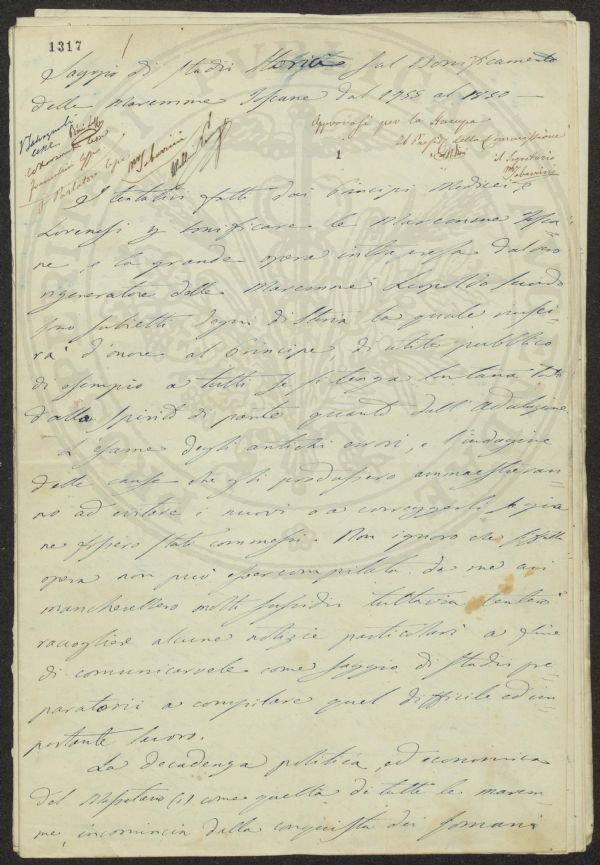 1317
Saggio di Studii Storici sul Bonificamento
delle Maremme Toscane dal 1755 al 1850 —
Approvasi per la Stampa
Il Presid. della Commissione
il Segretario
1
I tentativi fatti dai Principi Medicei, e
Lorenesi per bonificare le Maremme Tosca=
ne, e la grande opera intrapresa dal vero
rigeneratore delle Maremme Leopoldo Secondo
sono subietti degni di Storia la quale riusci=
rà d'onore al Principe, di utile pubblico
di esempio a tutti se si tenga lontana tanto
dallo spirito di parte quanto dall'Adulazione.
L'esame degli antichi errori, e l'indagine
delle cause che gli produssero ammaestreran=
no ad evitare i nuovi o a correggerli se già
ne fossero stati commessi. Non ignoro che siffatta
opera non può esser compilata da me cui
mancherebbero molti sussidii tuttavia tenterò
raccogliere alcune notizie particolari a fine
di comunicarvele come saggio di studii pre=
paratorii a compilare quel difficile ed im=
portante lavoro.
La decadenza politica ed economica
del Massetano (1) come quella di tutte le marem=
me, incomincia dalla conquista dei Romani